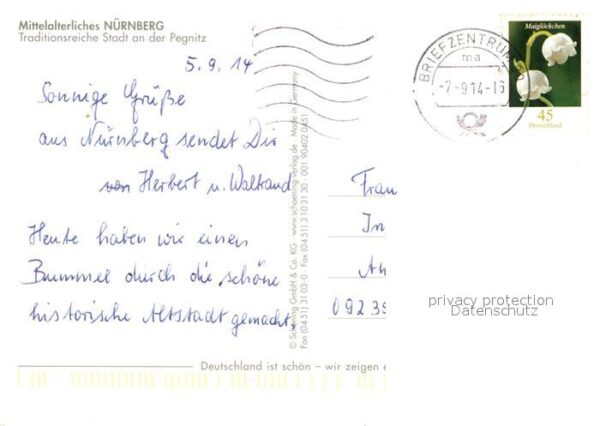 Mittelalterliches NÜRNBERG
Traditionsreiche Stadt an der Pegnitz
5.9.14
Sonnige Grüße
aus Nürnberg sendet Dir
von Herbert u. Waltraud
Heute haben wir einen
Bummel durch die schöne
historische Altstadt gemacht.
© Schöning GmbH & Co. KG · www.schoening-verlag.de · Made in Germany
Fon (04 51) 31 03-0 / Fax (04 51) 3 10 31 30 001 90402 0451
BRIEFZENTRUM
ma
-7.-9.14-16
Maiglöckchen
45
Deutschland
Frau
In
An
09239
privacy protection
Datenschutz
Deutschland ist schön – wir zeigen e